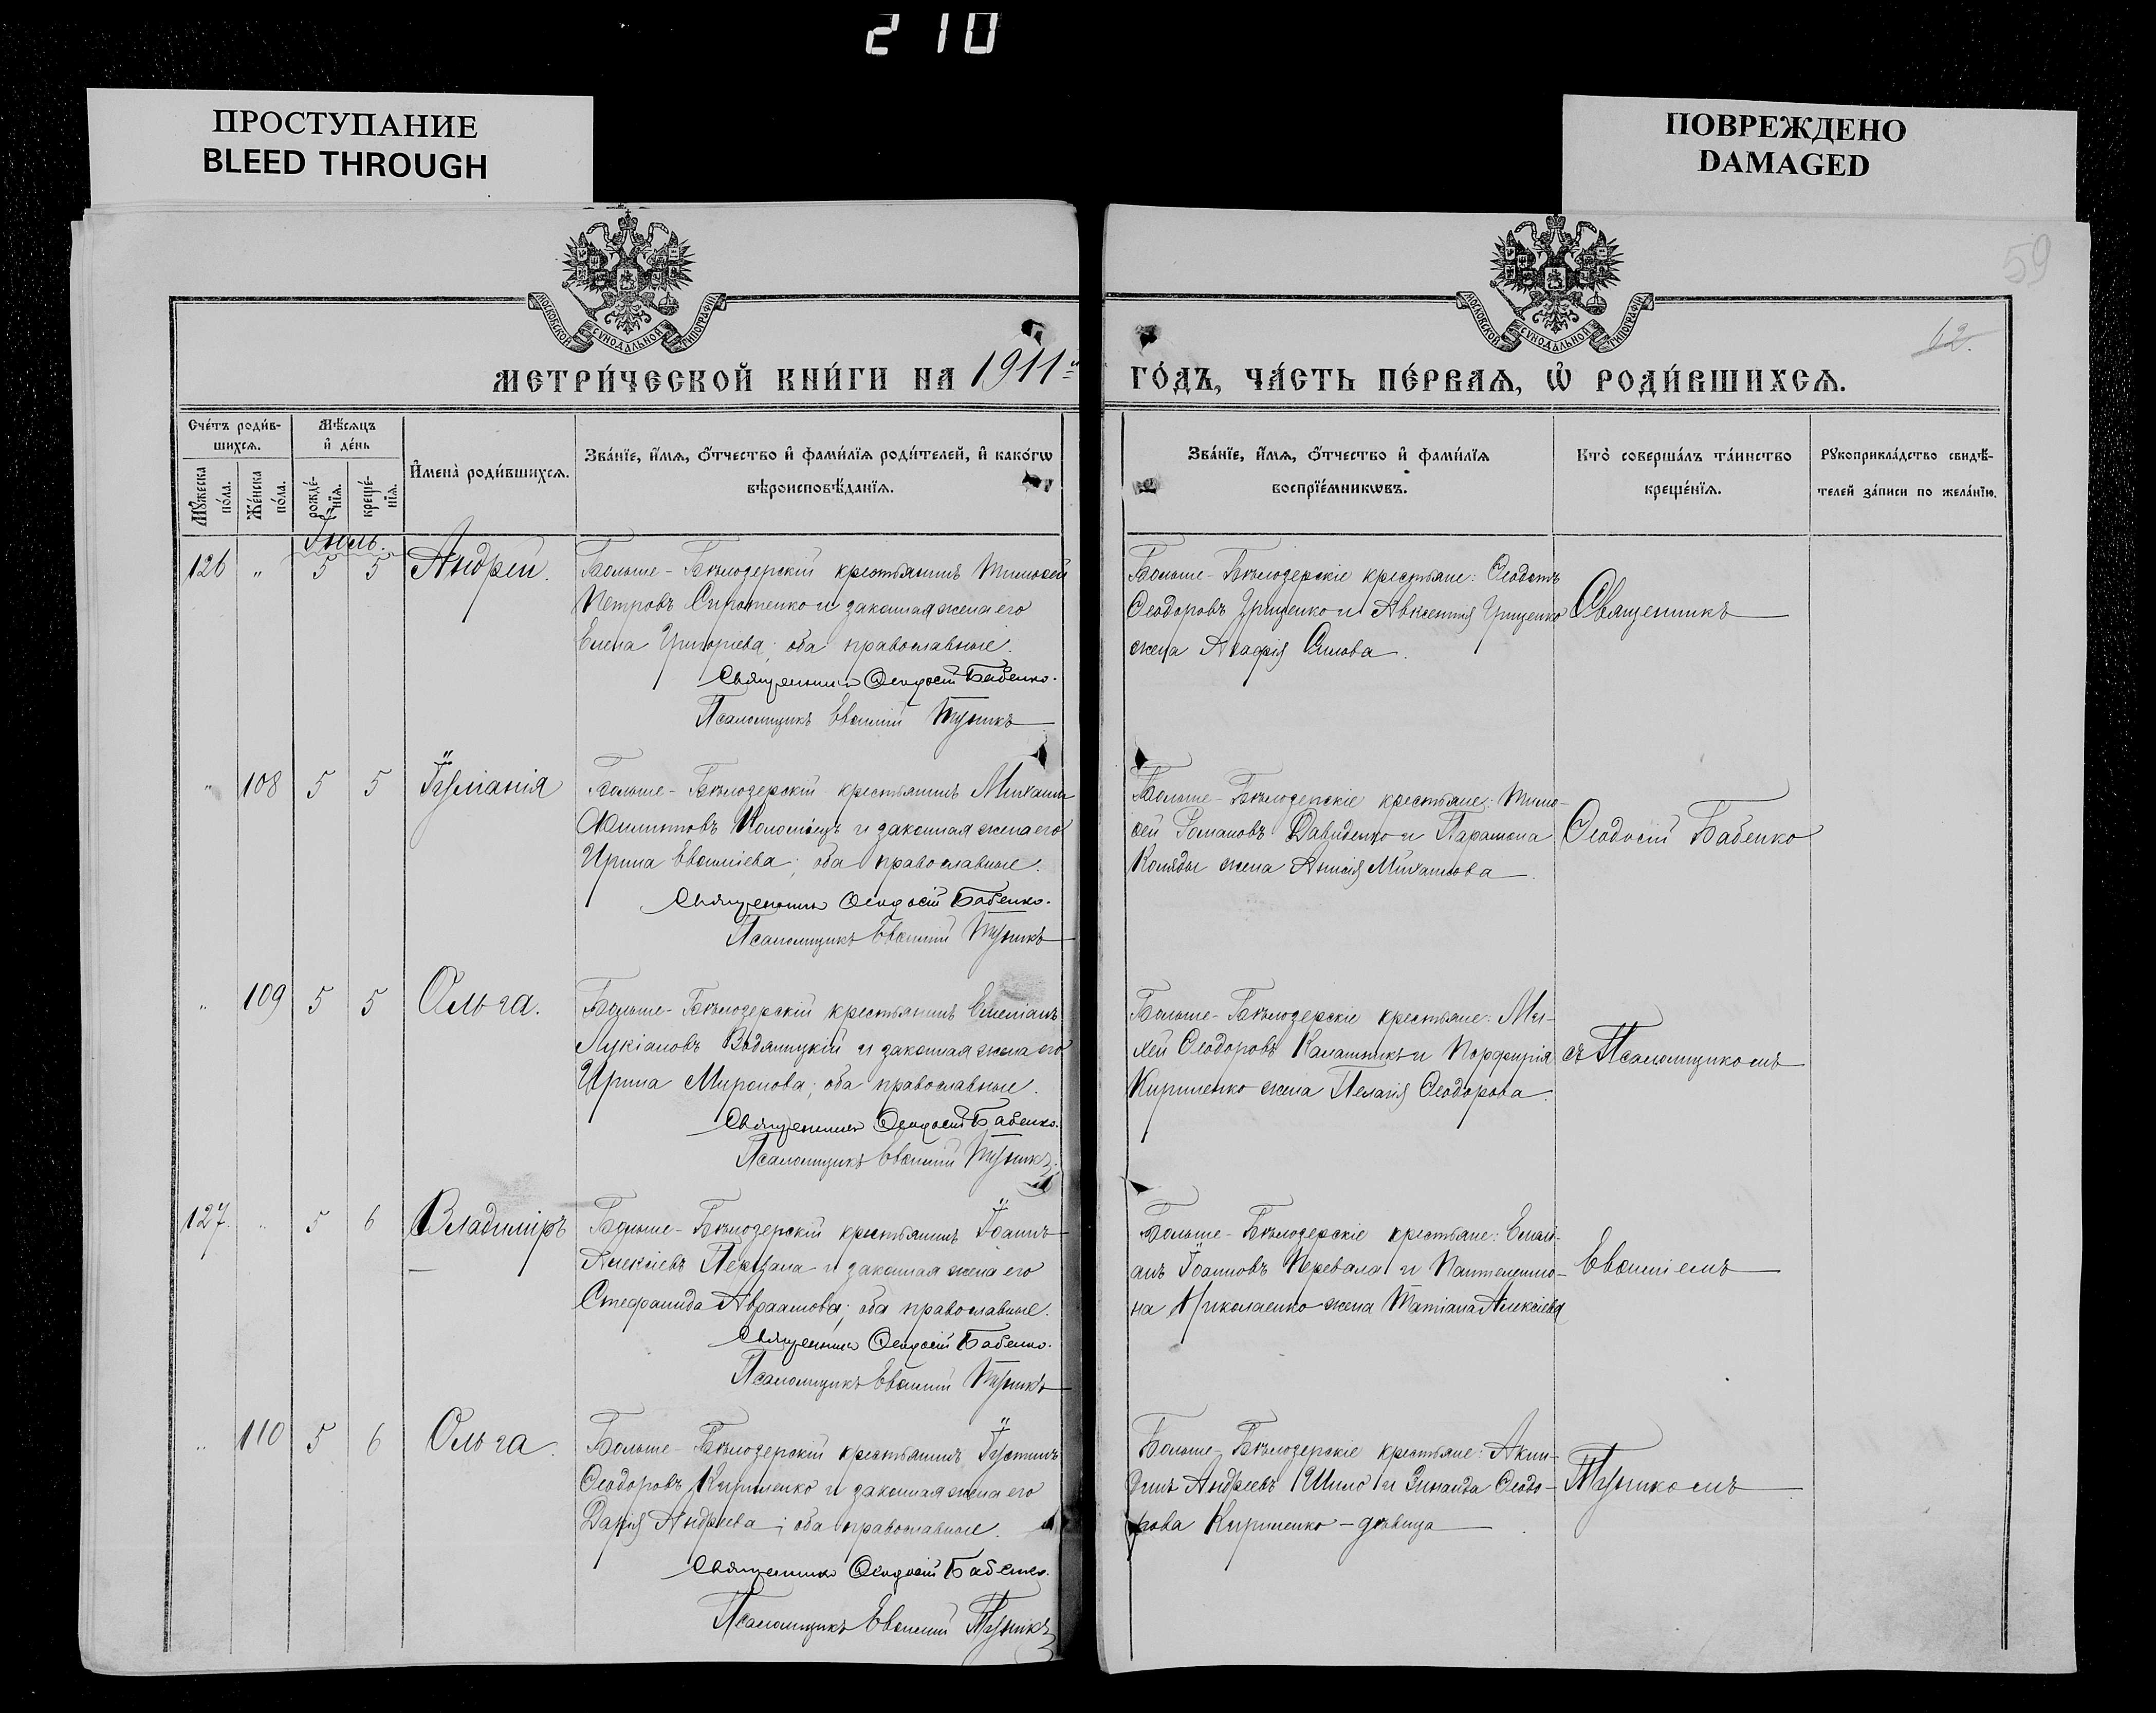 210
ПРОСТУПАНИЕ
BLEED THROUGH
ПОВРЕЖДЕНО
DAMAGED
59
62.
МОСКОВСКОЙ СУНОДАЛЬНОЙ ТИПОГРАФІИ
МОСКОВСКОЙ СУНОДАЛЬНОЙ ТИПОГРАФІИ
МЕТРИ́ЧЕСКОЙ КНИ́ГИ НА 1911й
ГО́ДЪ, ЧА́СТЬ ПЕ́РВАѦ, Ѡ҆ РОДИ́ВШИХСѦ.
Сче́тъ роди́в-
шихсѧ.
Мѣ́сѧцъ
и҆ де́нь
Мꙋ́жеска
по́ла.
Же́нска
по́ла.
рожде́-
нїѧ.
креще́-
нїѧ.
И҆мена̀ роди́вшихсѧ.
Зва́нїе, и҆́мѧ, ѻ҆́тчество и҆ фами́лїѧ роди́телей, и҆ како́гѡ
вѣроисповѣ́данїѧ.
Зва́нїе, и҆́мѧ, ѻ҆́тчество и҆ фами́лїѧ
воспрїе́мникѡвъ.
Кто̀ соверша́лъ та́инство
креще́нїѧ.
Рꙋкоприкла́дство свидѣ́-
телей за́писи по жела́нїю.
Іюль.
126 " 5 5 Андрей.
Больше-Бѣлозерскій крестьянинъ Тимоѳей
Петровъ Сиротенко и законная жена его
Елена Григорьева; оба православные.
Священникъ Ѳеодосій Бабенко.
Псаломщикъ Евѳимій Пузикъ
Больше-Бѣлозерскіе крестьяне: Ѳеодотъ
Ѳеодоровъ Гриценко и Авксентія Гриценко
жена Агафія Силова.
Священникъ
" 108 5 5 Іуліанія
Больше-Бѣлозерскій крестьянинъ Михаилъ
Филипповъ Коломіецъ и законная жена его
Ирина Евѳиміева; оба православные.
Священникъ Ѳеодосій Бабенко.
Псаломщикъ Евѳимій Пузикъ
Больше-Бѣлозерскіе крестьяне: Тимо-
ѳей Романовъ Давиденко и Парамона
Коляды жена Анисія Михаилова.
Ѳеодосій Бабенко
" 109 5 5 Ольга.
Больше-Бѣлозерскій крестьянинъ Емеліанъ
Лукіановъ Водяницкій и законная жена его
Ирина Миронова; оба православные.
Священникъ Ѳеодосій Бабенко.
Псаломщикъ Евѳимій Пузикъ
Больше-Бѣлозерскіе крестьяне: Ми-
хей Ѳеодоровъ Калашникъ и Порфирія
Кириленко жена Пелагія Ѳеодорова.
съ Псаломщикомъ
127. " 5 6 Владиміръ
Больше-Бѣлозерскій крестьянинъ Іоаннъ
Алексіевъ Перевала и законная жена его
Стефанида Авраамова; оба православные.
Священникъ Ѳеодосій Бабенко.
Псаломщикъ Евѳимій Пузикъ
Больше-Бѣлозерскіе крестьяне: Емелі-
анъ Іоанновъ Перевала и Пантелеимо-
на Николаенко жена Татіана Алексіева
Евѳиміемъ
" 110 5 6 Ольга.
Больше-Бѣлозерскій крестьянинъ Іустинъ
Ѳеодоровъ Кириленко и законная жена его
Дарія Андреева; оба православные.
Священникъ Ѳеодосій Бабенко.
Псаломщикъ Евѳимій Пузикъ
Больше-Бѣлозерскіе крестьяне: Акин-
динъ Андреевъ Шило и Зинаида Ѳеодо-
рова Кириленко - дѣвица
Пузикомъ